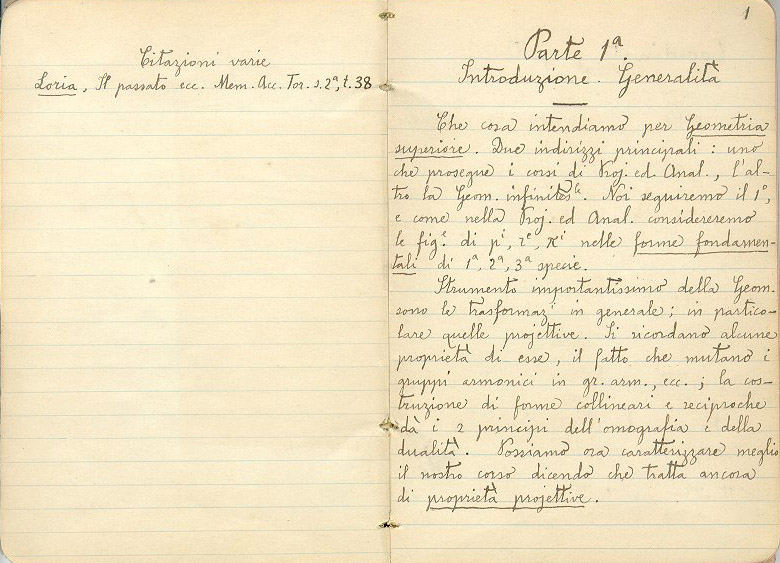 Citazioni varie
Loria, Il passato ecc. Mem. Acc. Tor. s.2ª, t. 38
1
Parte 1ª.
Introduzione. Generalità
Che cosa intendiamo per Geometria
superiore. Due indirizzi principali: uno
che prosegue i corsi di Proj. ed Anal., l'al-
tro la Geom. infinitesle. Noi seguiremo il 1º,
e come nella Proj. ed Anal. considereremo
le fige. di pi, re, πi nelle forme fondamen-
tali di 1ª, 2ª, 3ª specie.
Strumento importantissimo della Geom.
sono le trasformazi in generale; in partico-
lare quelle projettive. Si ricordano alcune
proprietà di esse, il fatto che mutano i
gruppi armonici in gr. arm., ecc.; la cos-
truzione di forme collineari e reciproche
dà i 2 principi dell'omografia e della
dualità. Possiamo ora caratterizzare meglio
il nostro corso dicendo che tratta ancora
di proprietà projettive.